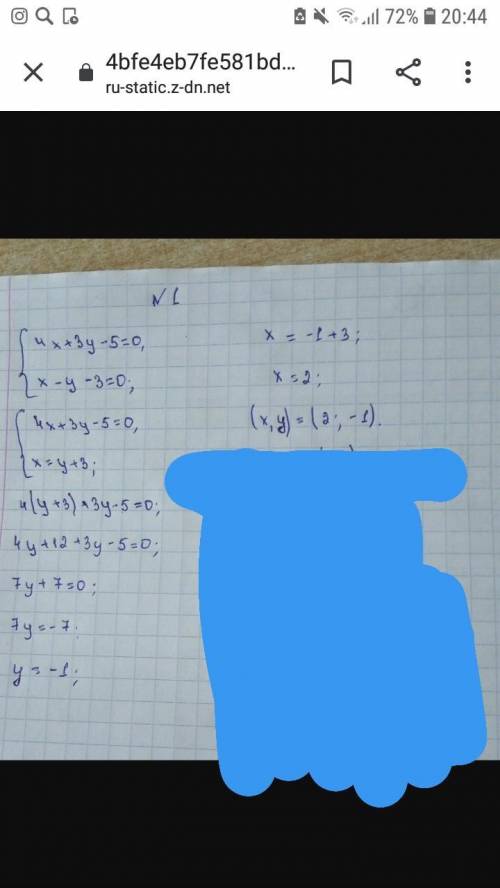 72% 20:44
4bfe4eb7fe581bd...
ru-static.z-dn.net
N 1
4x+3y-5=0,
x-y-3=0;
4x+3y-5=0,
x=y+3;
4(y+3)+3y-5=0;
4y+12+3y-5=0;
7y+7=0;
7y=-7;
y=-1;
x = -1+3;
x=2;
(x,y)=(2;-1).